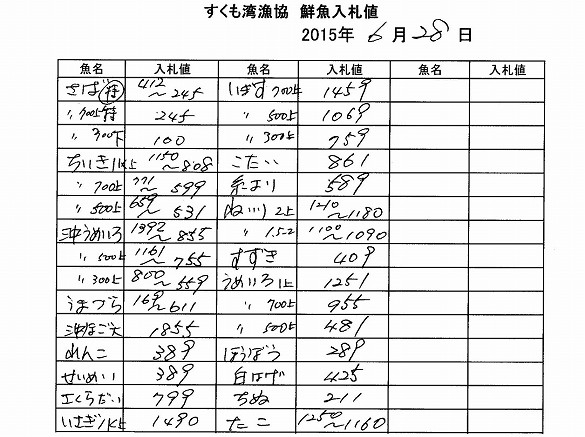 すくも湾漁協 鮮魚入札値
2015年 6月 28日
魚名 入札値 魚名 入札値 魚名 入札値
さば 特 412〜245 いぼす 700上 1459
〃 700上 特 245 〃 500上 1069
〃 300下 100 〃 300上 759
ちいき 1K上 1150〜808 こだい 861
〃 700上 771〜599 糸より 589
〃 500上 659〜531 2上 1210〜1180
沖うめいろ 1392〜855 〃 1.5-2 1100〜1090
〃 500上 1161〜755 すずき 409
〃 300上 800〜559 うめいろ 1上 1251
うまづら 169〜611 〃 700上 955
沖ほご 大 1855 〃 500上 481
れんこ 389 ほうぼう 289
せいめい 389 白はげ 425
さくらだい 799 ちぬ 211
いさぎ 1K上 1490 たこ 1250〜1160